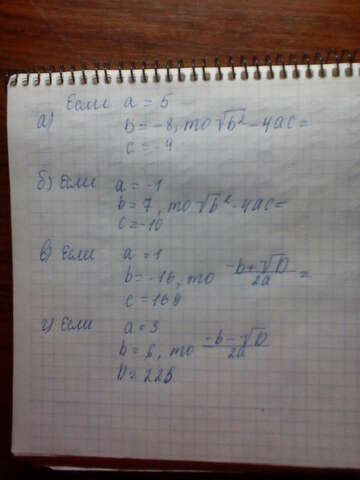 Если a = 5
а) b = -8, то √b² - 4ac =
c = -4
б) Если a = -1
b = 7, то √b² - 4ac =
c = -10
в) Если a = 1
b = -16, то (-b+√D)/2a =
c =
г) Если a = 3
b = 6, то (-b-√D)/2a
D = 225